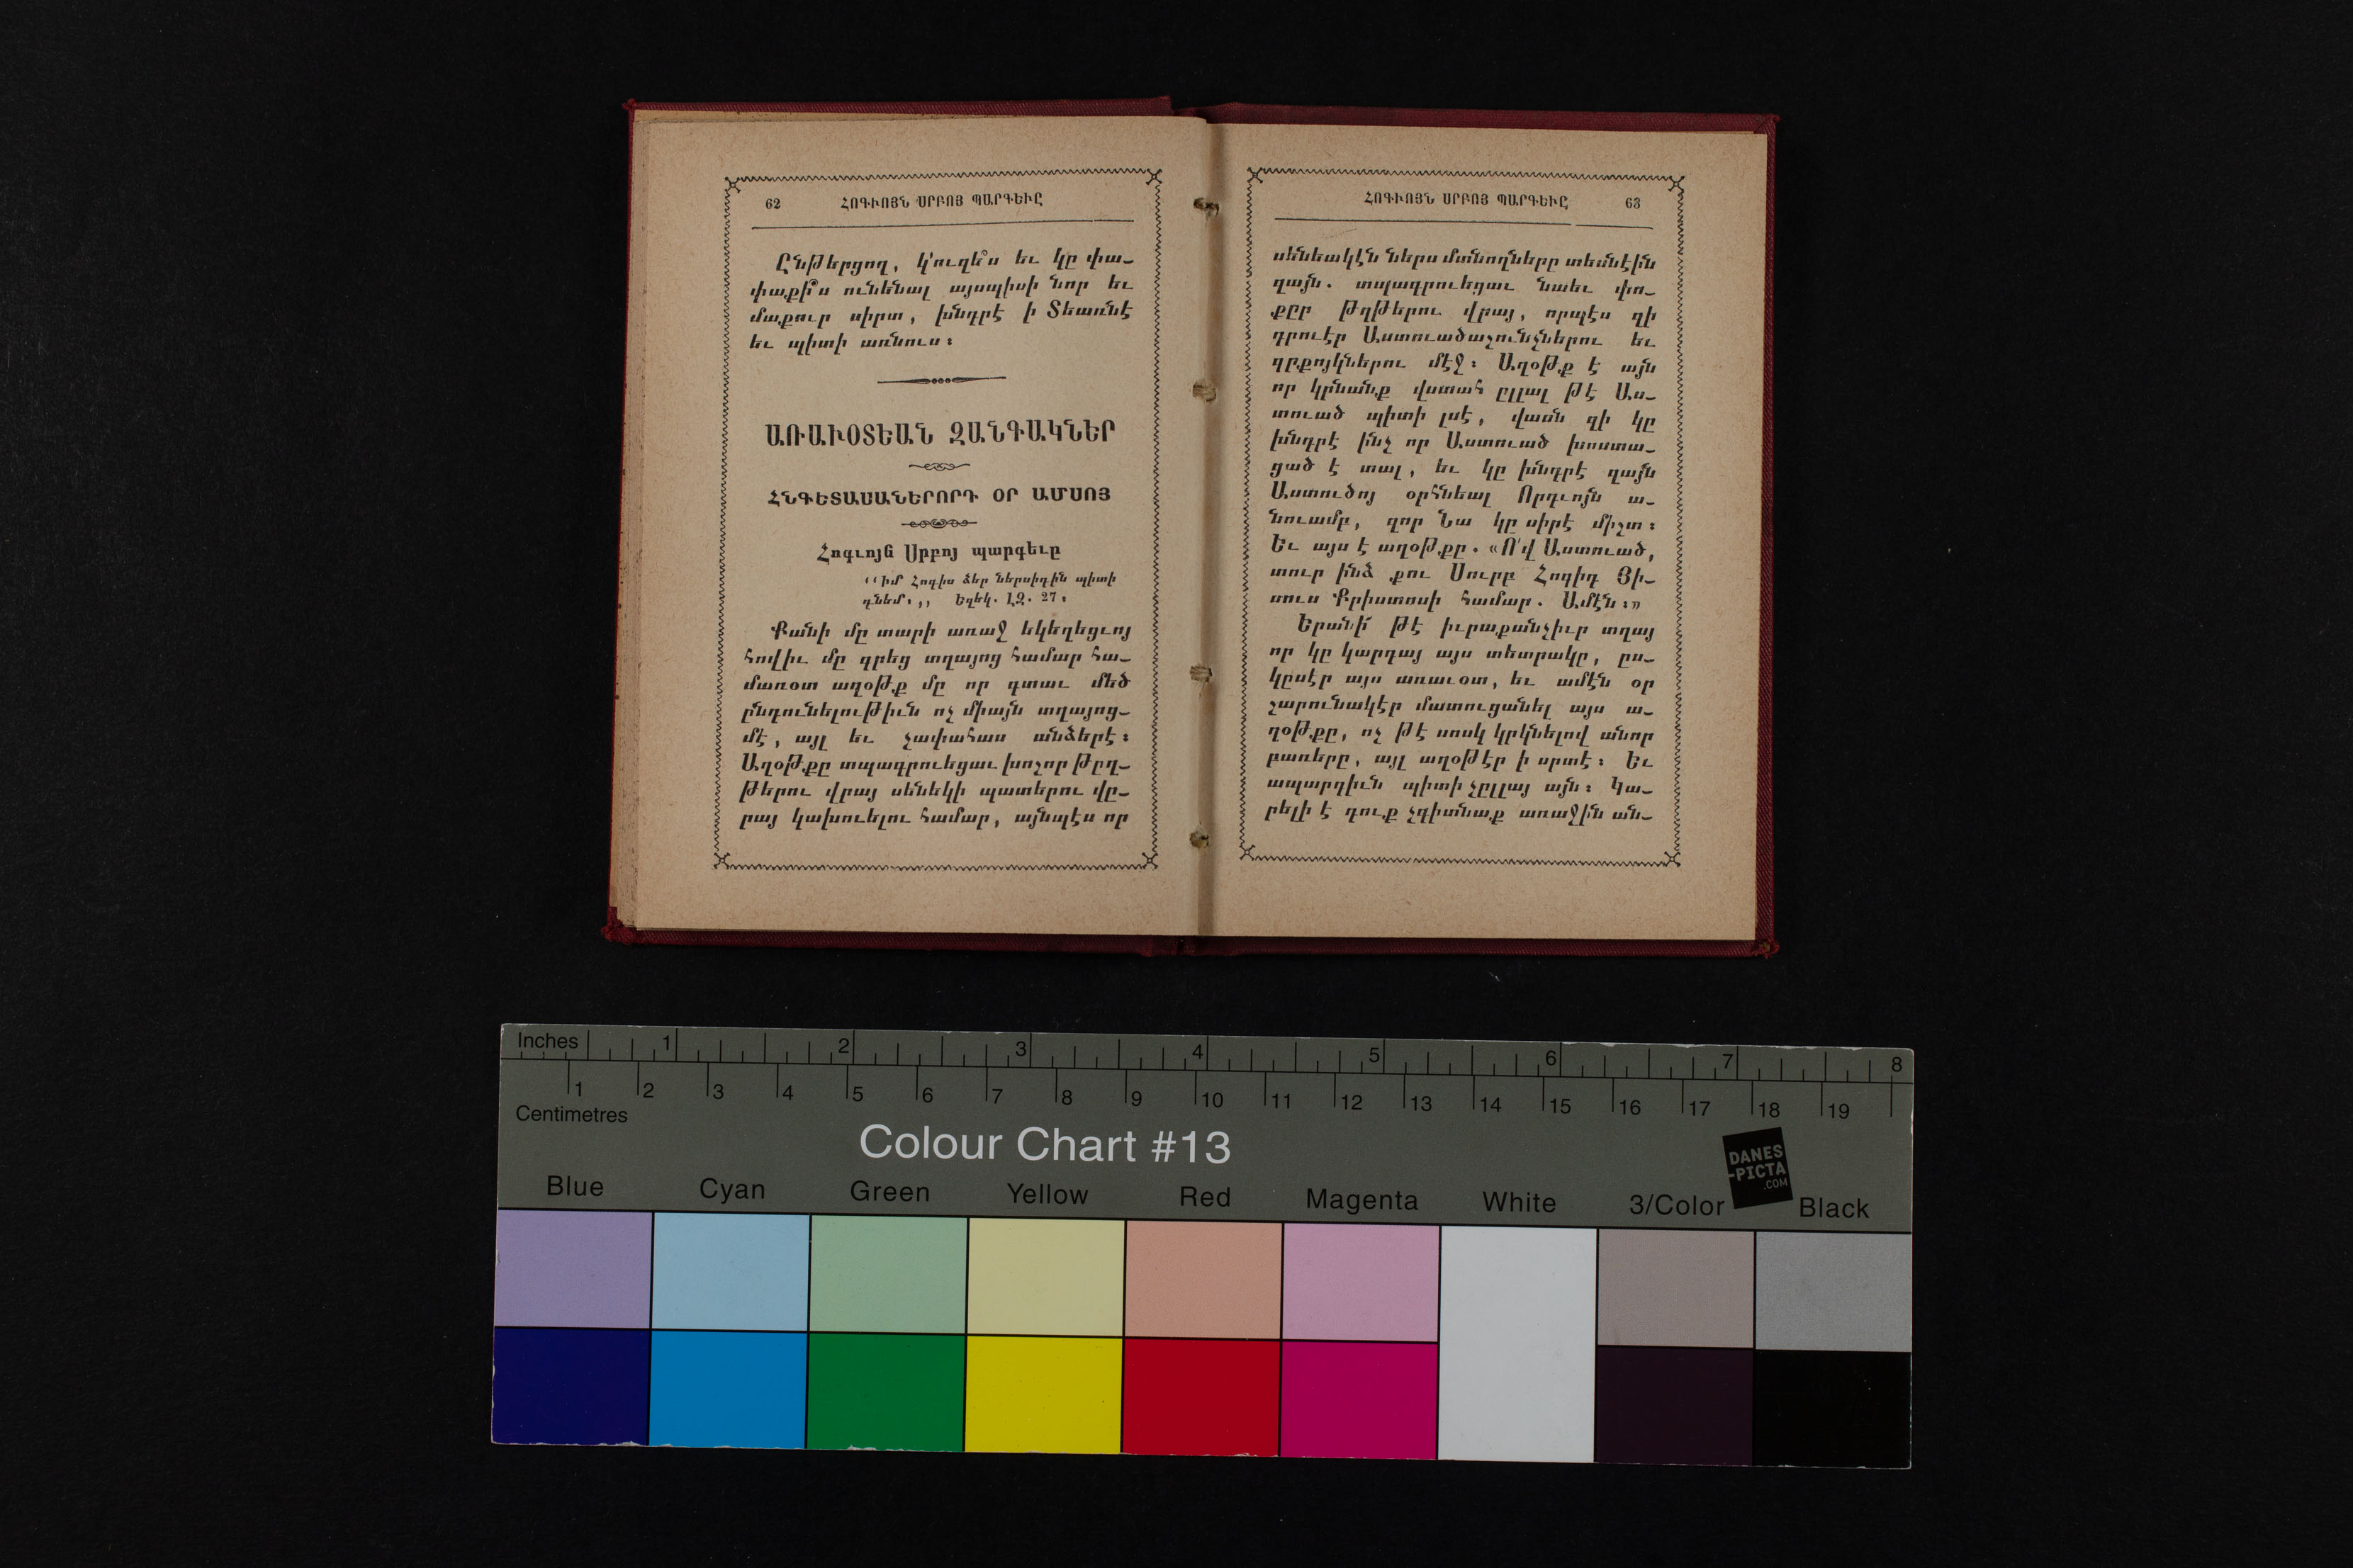 62 ՀՈԳՒՈՅՆ ՍՐԲՈՅ ՊԱՐԳԵՒԸ
Ընթերցող, կ՚ուզե՞ս եւ կը փա-
փաքի՞ս ունենալ այսպիսի նոր եւ
մաքուր սիրտ, խնդրէ ի Տեառնէ
եւ պիտի առնուս։
ԱՌԱՒՕՏԵԱՆ ԶԱՆԳԱԿՆԵՐ
ՀՆԳԵՏԱՍԱՆԵՐՈՐԴ ՕՐ ԱՄՍՈՅ
Հոգւոյն Սրբոյ պարգեւը
‘‘Իմ Հոգիս ձեր ներսիդին պիտի
դնեմ։,, Եզեկ. ԼԶ. 27։
Քանի մը տարի առաջ եկեղեցւոյ
հովիւ մը գրեց տղայոց համար հա-
մառօտ աղօթք մը որ գտաւ մեծ
ընդունելութիւն ոչ միայն տղայոց-
մէ, այլ եւ չափահաս անձերէ։
Աղօթքը տպագրուեցաւ խոշոր թըղ-
թերու վրայ սենեկի պատերու վը-
րայ կախուելու համար, այնպէս որ
ՀՈԳՒՈՅՆ ՍՐԲՈՅ ՊԱՐԳԵՒԸ 63
սենեակէն ներս մտնողները տեսնէին
զայն. տպագրուեցաւ նաեւ փո-
քըր թղթերու վրայ, որպէս զի
դրուէր Աստուածաշունչներու եւ
գրքոյկներու մէջ։ Աղօթք է այն
որ կրնանք վստահ ըլլալ թէ Աս-
տուած պիտի լսէ, վասն զի կը
խնդրէ ինչ որ Աստուած խոստա-
ցած է տալ, եւ կը խնդրէ զայն
Աստուծոյ օրհնեալ Որդւոյն ա-
նուամբ, զոր Նա կը սիրէ միշտ։
Եւ այս է աղօթքը. «Ո՛վ Աստուած,
տուր ինձ քու Սուրբ Հոգիդ Յի-
սուս Քրիստոսի համար. Ամէն։»
Երանի՜ թէ իւրաքանչիւր տղայ
որ կը կարդայ այս տետրակը, ըս-
կըսէր այս առաւօտ, եւ ամէն օր
շարունակէր մատուցանել այս ա-
ղօթքը, ոչ թէ սոսկ կրկնելով անոր
բառերը, այլ աղօթէր ի սրտէ։ Եւ
ապարդիւն պիտի չըլլայ այն։ Կա-
րելի է դուք չգիտնաք առաջին ան-
Inches 1 2 3 4 5 6 7 8
1 2 3 4 5 6 7 8 9 10 11 12 13 14 15 16 17 18 19
Centimetres
Colour Chart #13
DANES
-PICTA
.COM
Blue Cyan Green Yellow Red Magenta White 3/Color Black